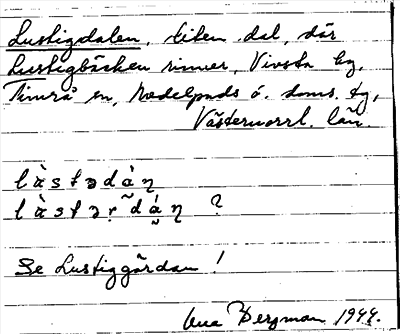 Lustigdalen, liten dal, där
Lustigbäcken rinner, Vivsta by,
Timrå sn, Medelpads ö. doms. tg,
Västernorrl. län.
làstədàɳ
làstəṛ̃dá̰ɳ ?
Se Lustiggårdan !
Bergman 1944.